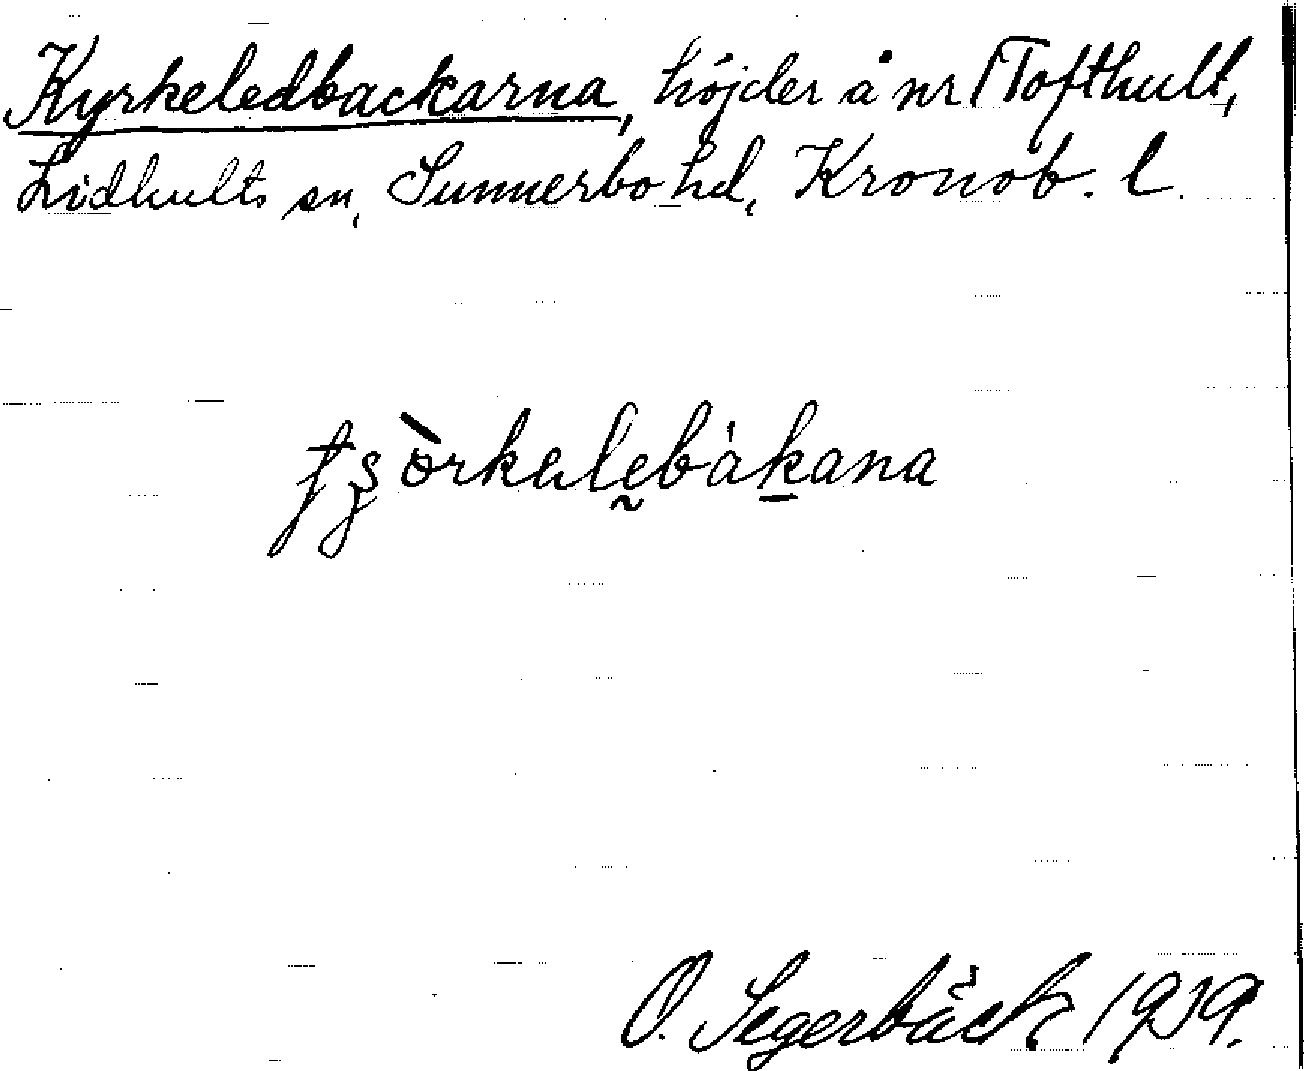 Kyrkeledbackarna, höjder å nr 1 Tofthult,
Lidhults sn, Sunnerbo hd, Kronob. l.
O. Segerbäck 1939.